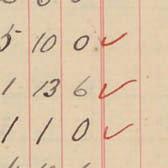 5 10 0 ✓
1 13 6 ✓
1 1 0 ✓